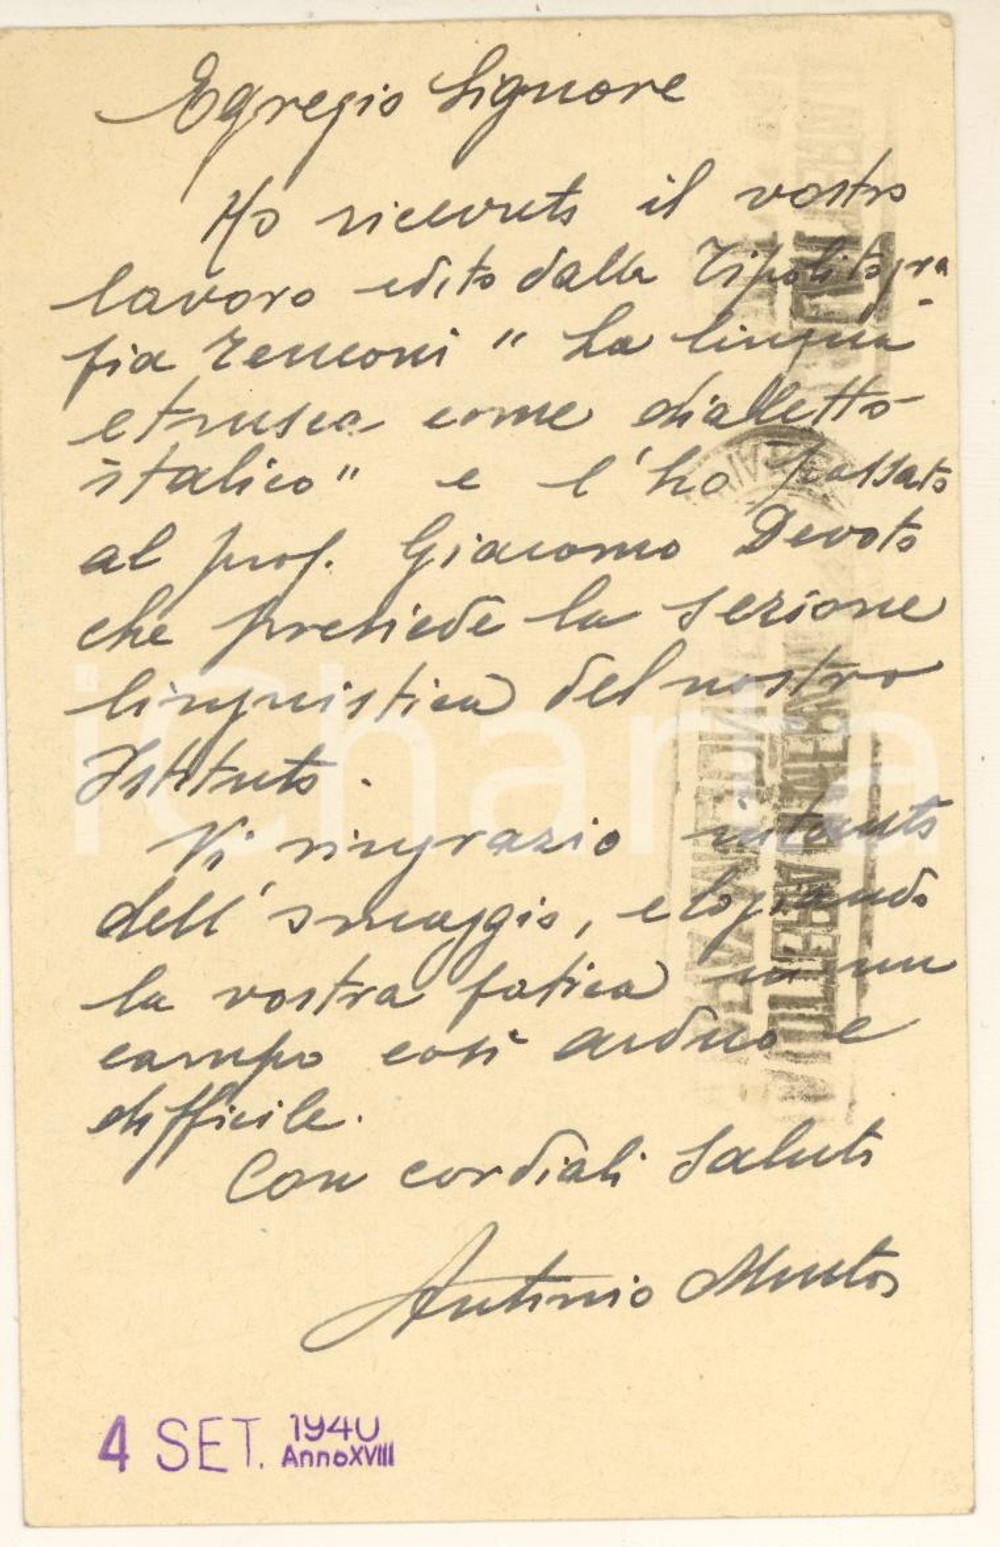 Egregio Signore
Ho ricevuto il vostro
lavoro edito dalla Tipolitogra-
fia Zenconi "La lingua
etrusca come dialetto
italico" e l'ho passato
al prof. Giacomo Devoto
che presiede la sezione
linguistica del nostro
Istituto.
Vi ringrazio intanto
dell'omaggio, elogiando
la vostra fatica in un
campo così arduo e
difficile.
Con cordiali saluti
Antonio Minto
4 SET. 1940
Anno XVIII
iCharta